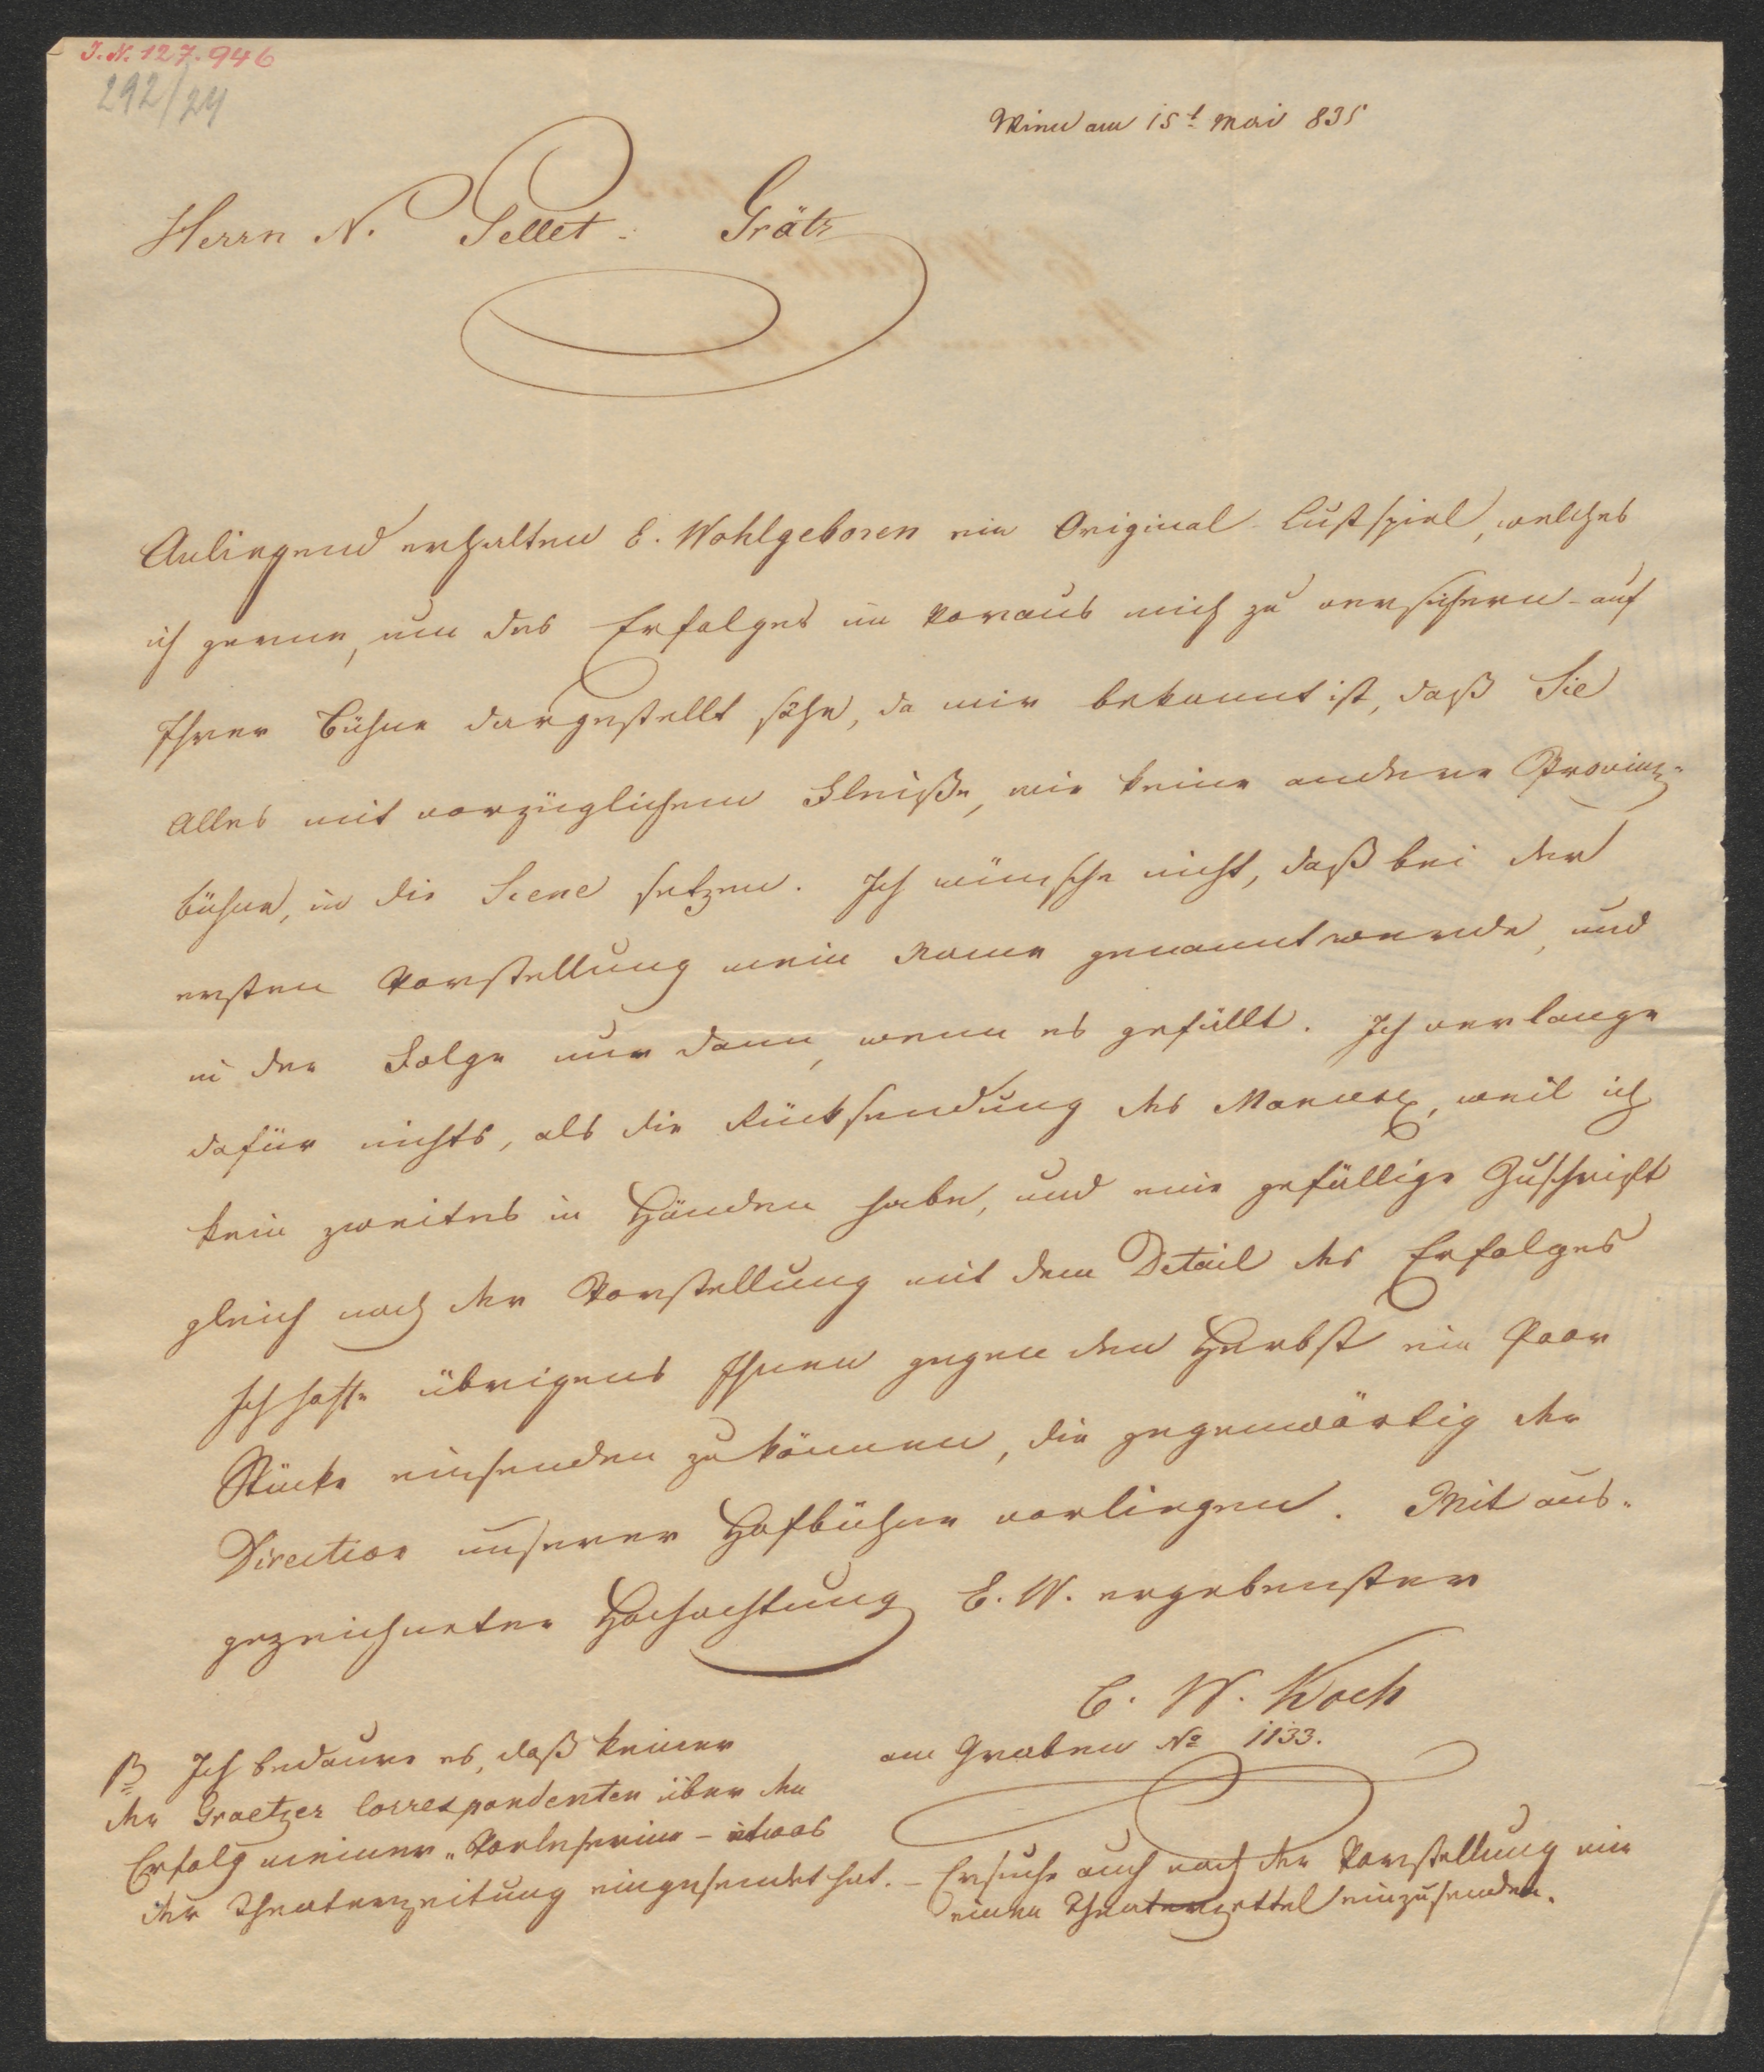 J. N. 127.946
292/24
Wien am 15t Mai 835
Herrn N. Pellet. Grätz
Anliegend erhalten E. Wohlgeboren ein Original-Lustspiel, welches
ich gerne, um des Erfolges im Voraus mich zu versichern - auf
Ihrer Bühne dargestellt sähe, da mir bekannt ist, daß Sie
Alles mit vorzüglichem Fleiße, wie keine andere Provinz-
bühne, in die Scene setzen. Ich wünsche nicht, daß bei der
ersten Vorstellung mein Name genannt werde, und
in der Folge nur dann, wenn es gefällt. Ich verlange
dafür nichts, als die Rücksendung des Manusc, weil ich
kein zweites in Händen habe, und eine gefällige Zuschrift
gleich nach der Vorstellung mit dem Detail des Erfolges
Ich hoffe übrigens Ihnen gegen den Herbst ein Paar
Stücke einsenden zu können, die gegenwärtig der
Direction unserer Hofbühne vorliegen. Mit aus-
gezeichneter Hochachtung E. W. ergebenster
C. W. Koch
am Graben No 1133.
PS Ich bedaure es, daß keiner
der Graetzer Correspondenten über den
Erfolg meiner „Vorleserinn - etwas
der Theaterzeitung eingesendet hat. - Ersuche auch nach der Vorstellung mir
einen Theaterzettel einzusenden.